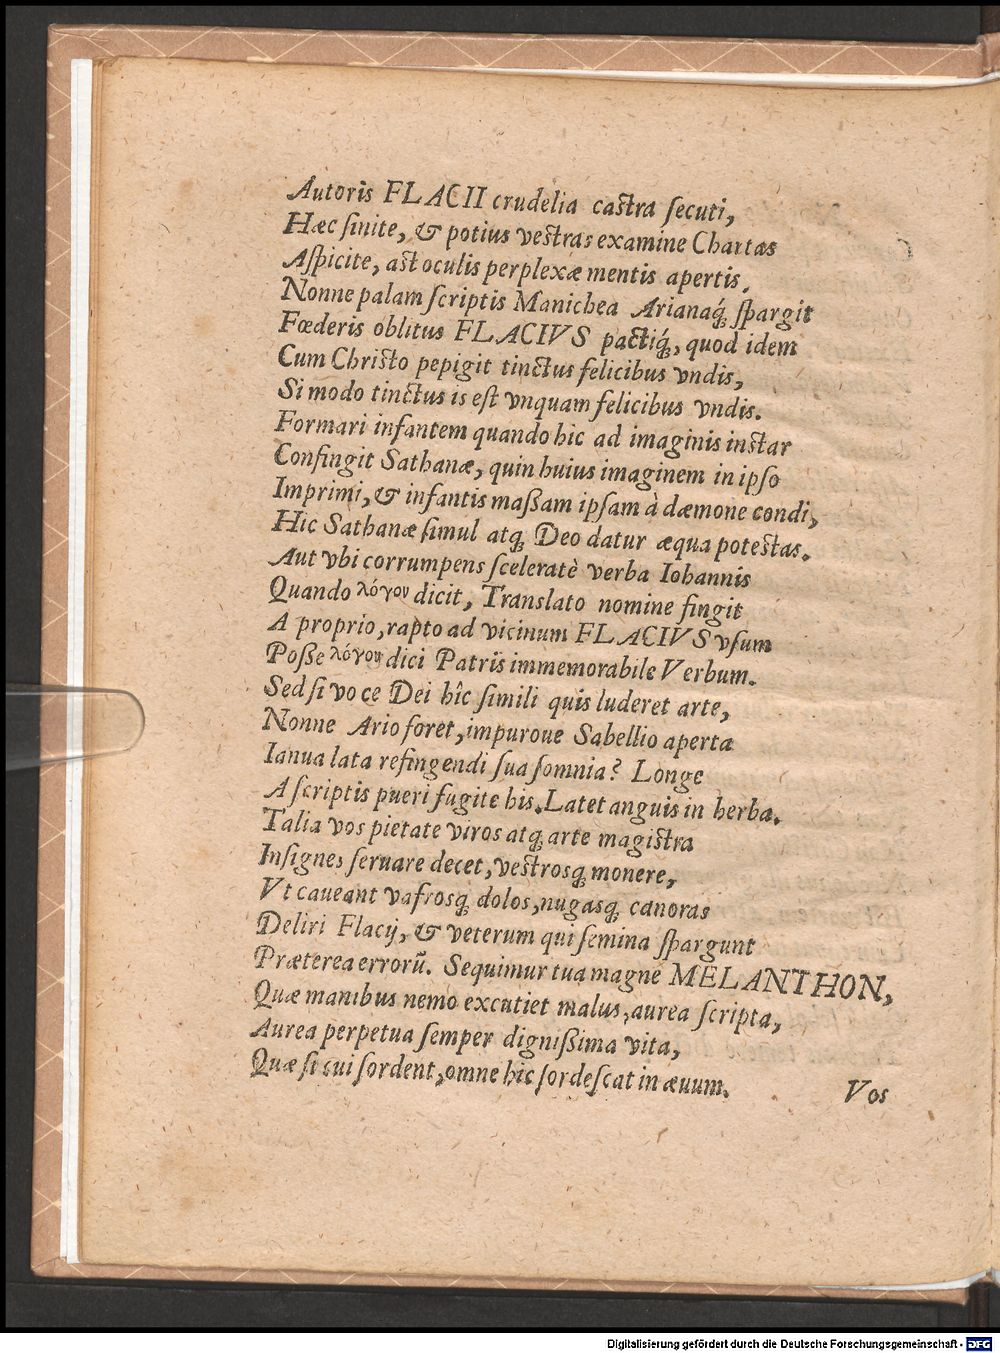 Autoris FLACII crudelia castra ſecuti,
Hæc ſinite, & potius veſtras examine Chartas
Aſpicite, aſt oculis perplexæ mentis apertis.
Nonne palam ſcriptis Manichea Arianaq́; ſpargit
Fœderis oblitus FLACIVS pactiq́;, quod idem
Cum Chriſto pepigit tinctus felicibus vndis,
Si modo tinctus is eſt vnquam felicibus vndis.
Formari infantem quando hic ad imaginis inſtar
Confingit Sathanæ, quin huius imaginem in ipſo
Imprimi, & infantis maßam ipſam à dæmone condi,
Hic Sathanæ ſimul atq; Deo datur æqua poteſtas.
Aut vbi corrumpens ſceleratè verba Iohannis
Quando λόγου dicit, Translato nomine fingit
A proprio, rapto ad vicinum FLACIVS vſum
Poße λόγου dici Patris immemorabile Verbum.
Sed ſi vo ce Dei hîc ſimili quis luderet arte,
Nonne Ario foret, impuroue Sabellio aperta
Ianua lata refingendi ſua ſomnia? Longe
A ſcriptis pueri fugite his. Latet anguis in herba.
Talia vos pietate viros atq; arte magiſtra
Inſignes ſeruare decet, veſtrosq; monere,
Vt caueant vafrosq; dolos, nugasq; canoras
Deliri Flacij, & veterum qui ſemina ſpargunt
Præterea errorū. Sequimur tua magne MELANTHON,
Quæ manibus nemo excutiet malus, aurea ſcripta,
Aurea perpetua ſemper dignißima vita,
Quæ ſi cui ſordent, omne hic ſordeſcat in æuum.
Vos
Digitalisierung gefördert durch die Deutsche Forschungsgemeinschaft - DFG